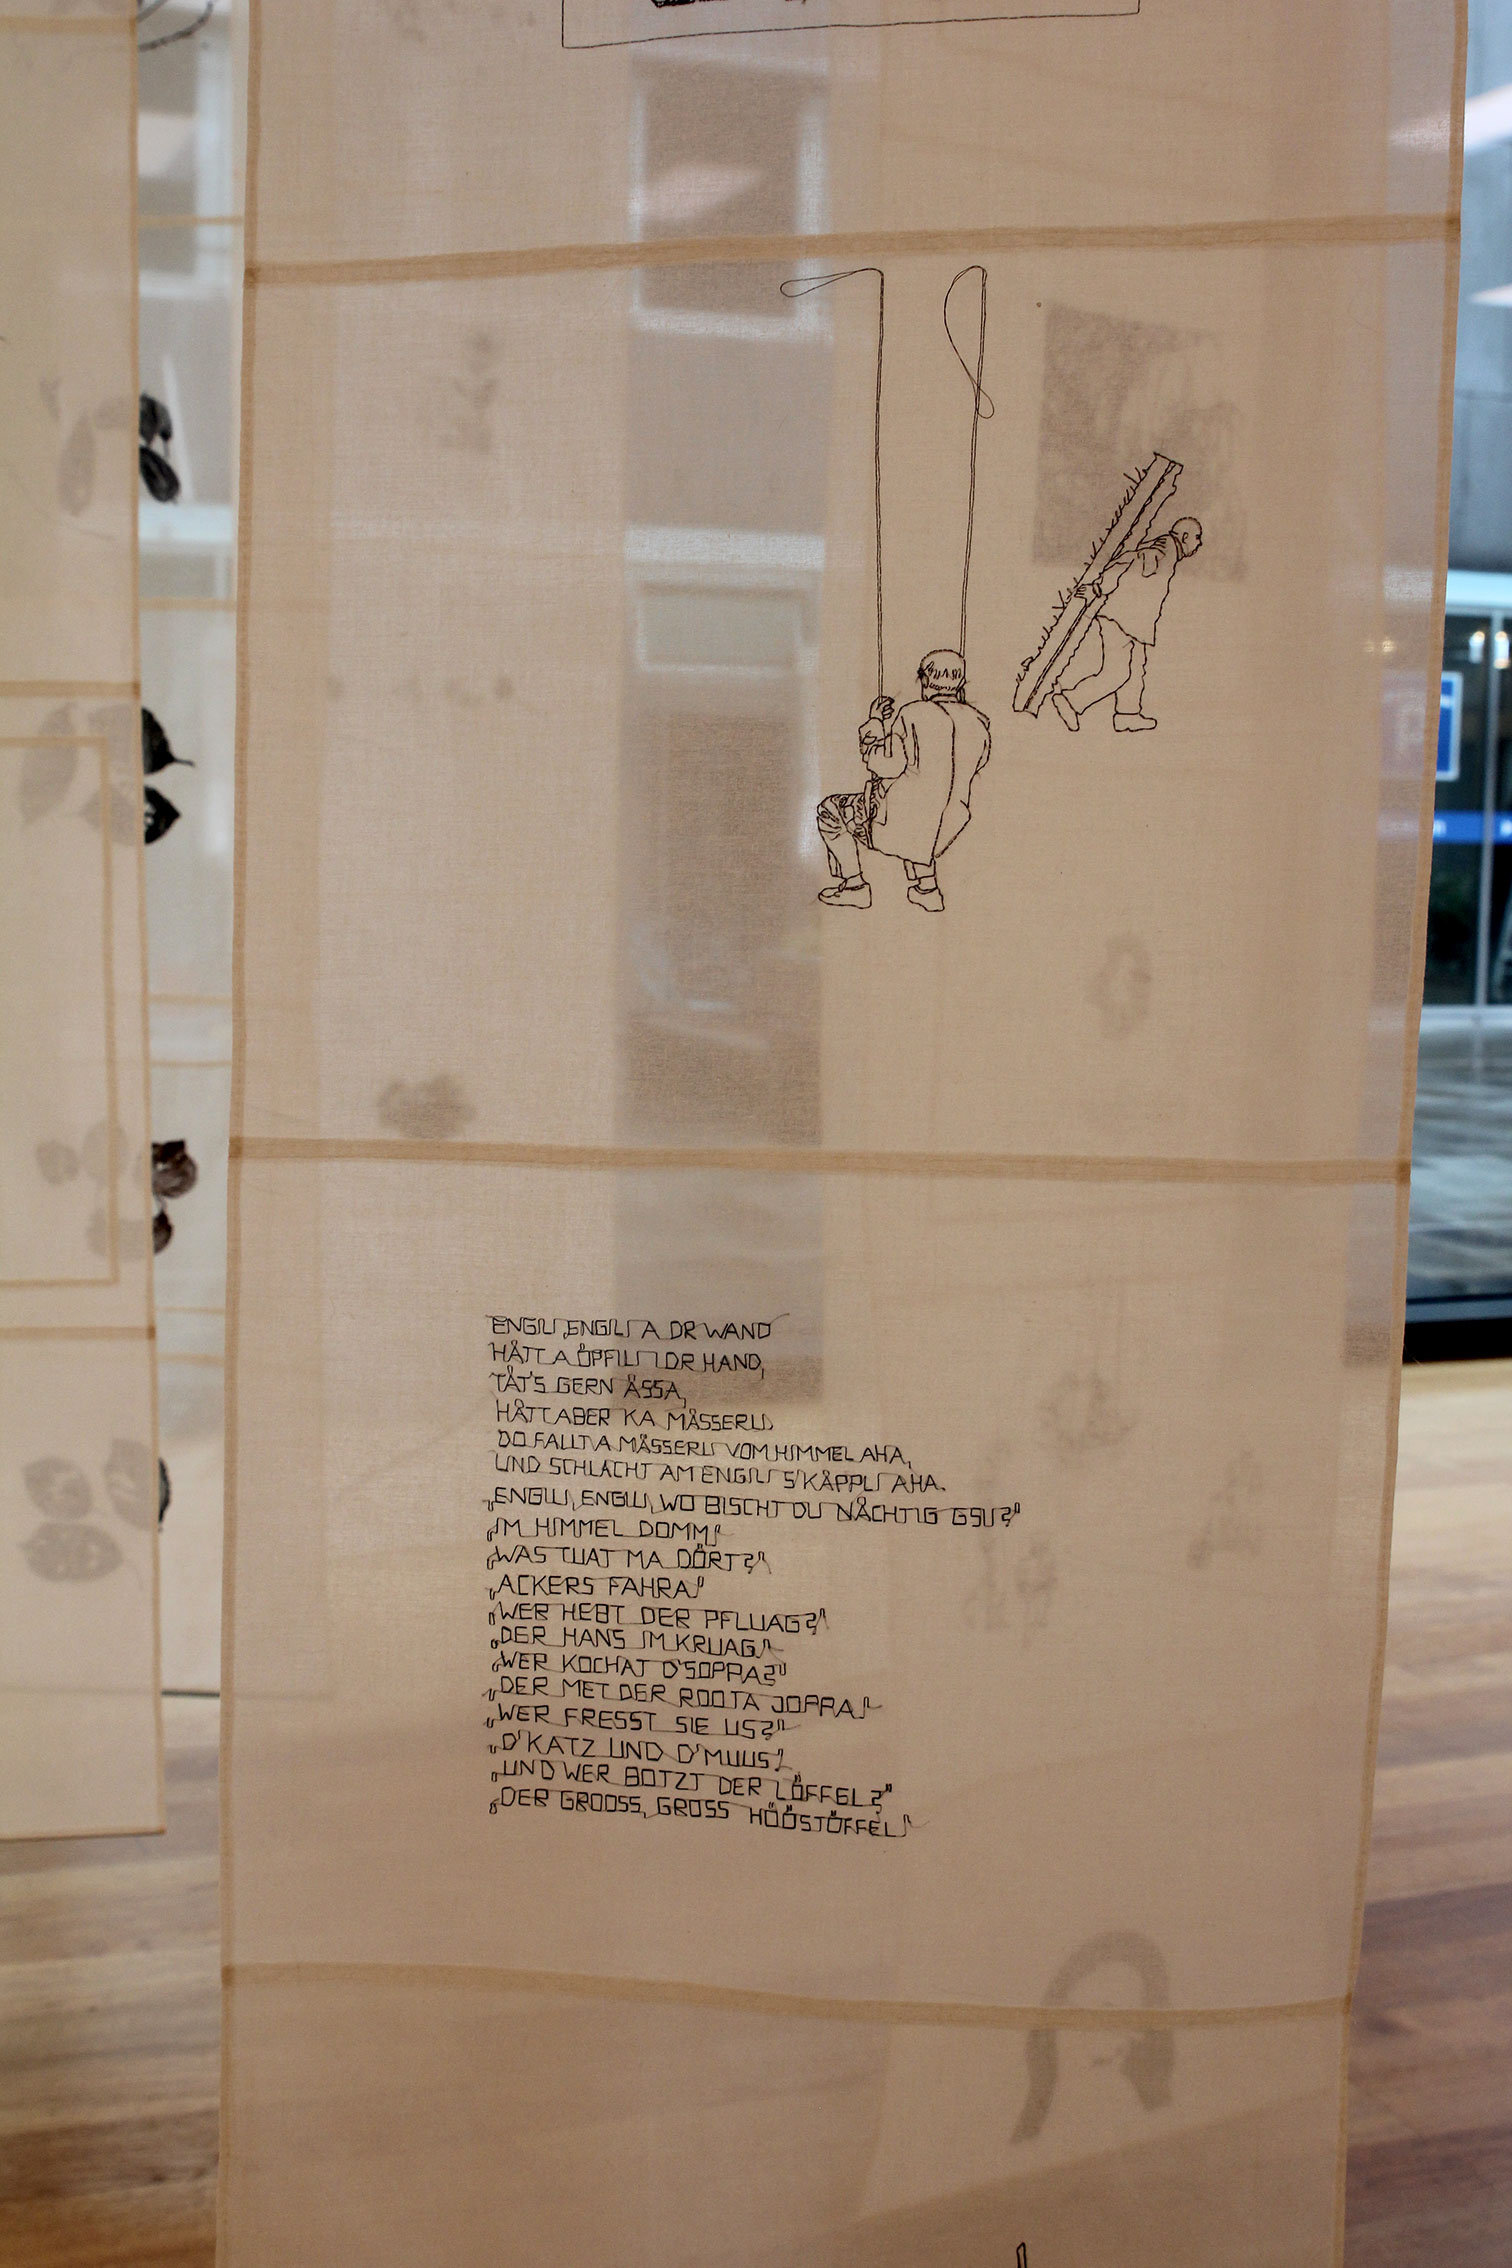 ENGILI, ENGILI A DR WAND
HÄTT A ÖPFILI I DR HAND,
TÄT'S GERN ÄSSA,
HÄTT ABER KA MÄSSERLI.
DO FALLT A MÄSSERLI VOM HIMMEL AHA,
UND SCHLACHT AM ENGILI S'KÄPPLI AHA.
„ENGILI, ENGILI, WO BISCHT DU NÄCHTIG GSI?"
„IM HIMMEL DOMM"
„WAS TUAT MA DÖRT?"
„ACKERS FAHRA"
„WER HEBT DER PFLUAG?"
„DER HANS IM KRUAG"
„WER KOCHAT D'SOPPA?"
„DER MET DER ROOTA JOPPA"
„WER FRESST SIE US?"
„D'KATZ UND D'MUUS"
„UND WER BOTZT DER LÖFFEL?"
„DER GROOSS, GROSS HÖÖSTÖFFEL"
P